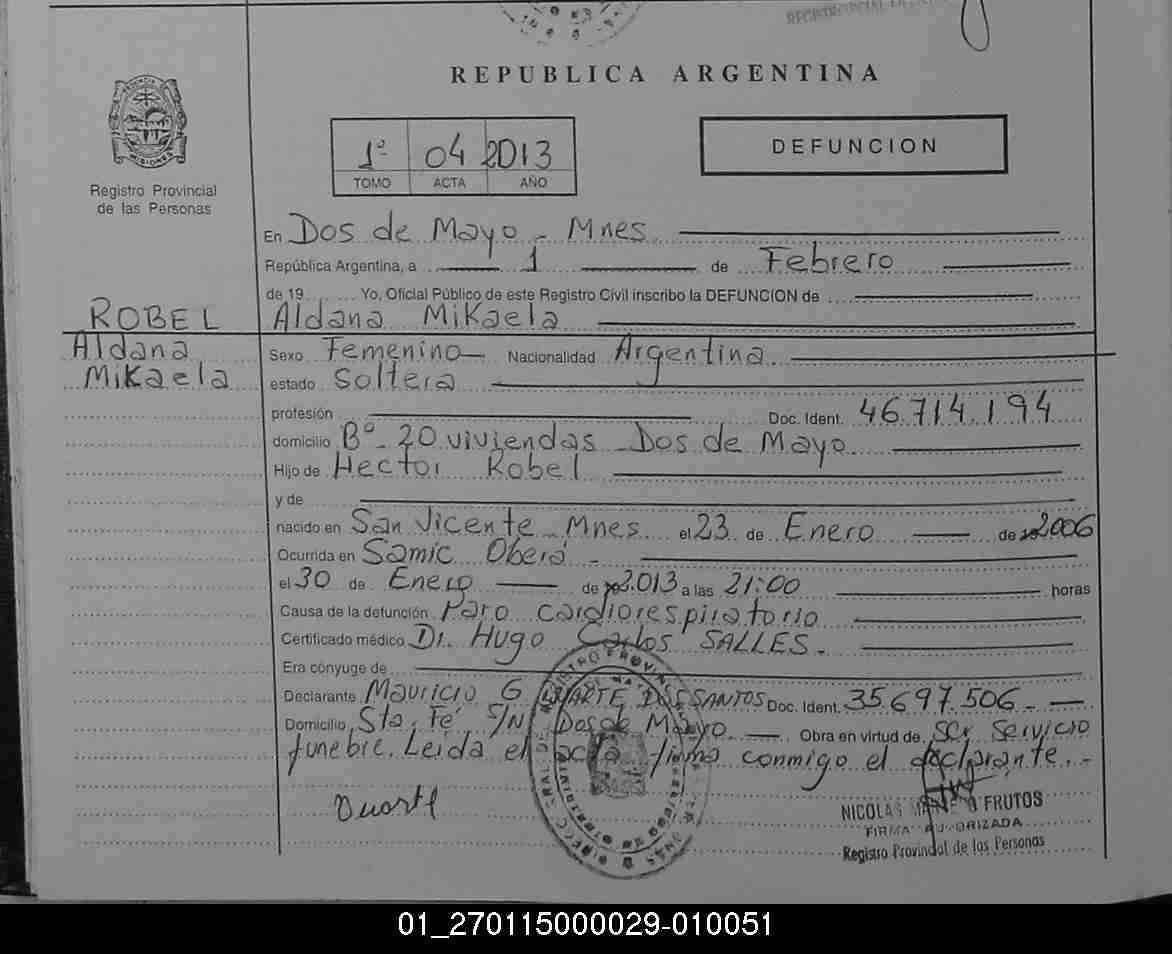 REPUBLICA ARGENTINA
MISIONES
Registro Provincial
de las Personas
1º 04 2013
TOMO ACTA AÑO
DEFUNCION
En Dos de Mayo - Mnes
República Argentina, a 1 de Febrero
de 19 Yo, Oficial Público de este Registro Civil inscribo la DEFUNCION de
ROBEL Aldana Mikaela
Aldana Sexo Femenino Nacionalidad Argentina
Mikaela estado Soltera
profesión Doc. Ident. 46.714.194
domicilio Bº 20 viviendas Dos de Mayo
Hijo de Hector Robel
y de
nacido en San Vicente Mnes el 23 de Enero de 2006
Ocurrida en Samic Oberá -
el 30 de Enero de 2.013 a las 21:00 horas
Causa de la defunción Paro cardiorespiratorio
Certificado médico Dr. Hugo Carlos SALLES.
Era cónyuge de
Declarante Mauricio G DUARTE DOS SANTOS Doc. Ident. 35.697.506
Domicilio Sta. Fé S/N Dos de Mayo Obra en virtud de ser Servicio
funebre. Leida el acta firma conmigo el declarante.-
Duarte
NICOLAS FRUTOS
FIRMA AUTORIZADA
Registro Provincial de las Personas
01_270115000029-010051